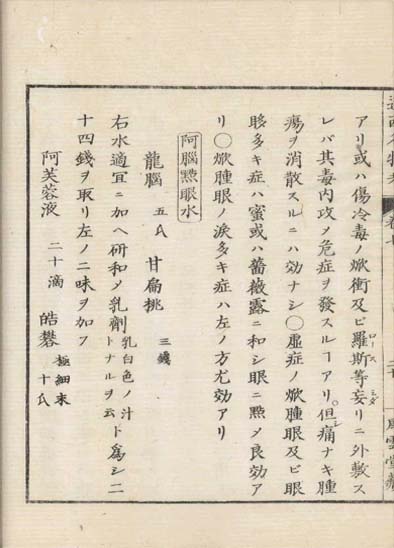 アリ或ハ傷冷毒ノ焮衝及ビ羅斯等妄リニ外敷ス
ロース
ミダ
レバ其毒内攻メ危症ヲ發スルヿアリ。但シ痛ナキ腫
瘍ヲ消散スルニハ効ナシ〇虚症ノ焮腫眼及ビ眼
眵多キ症ハ蜜或ハ薔薇露ニ和シ眼ニ㸃メ良効ア
リ〇焮腫眼ノ淚多キ症ハ左ノ方尤効アリ
阿腦㸃眼水
龍腦 五氏 甘扁桃 三錢
右水適宜ニ加ヘ研和メ乳劑乳白色ノ汁トナルヲ云ト爲シ二
十四錢ヲ取リ左ノ二味ヲ加フ
阿芙蓉液 二十滴 皓礬 極細末 十氏